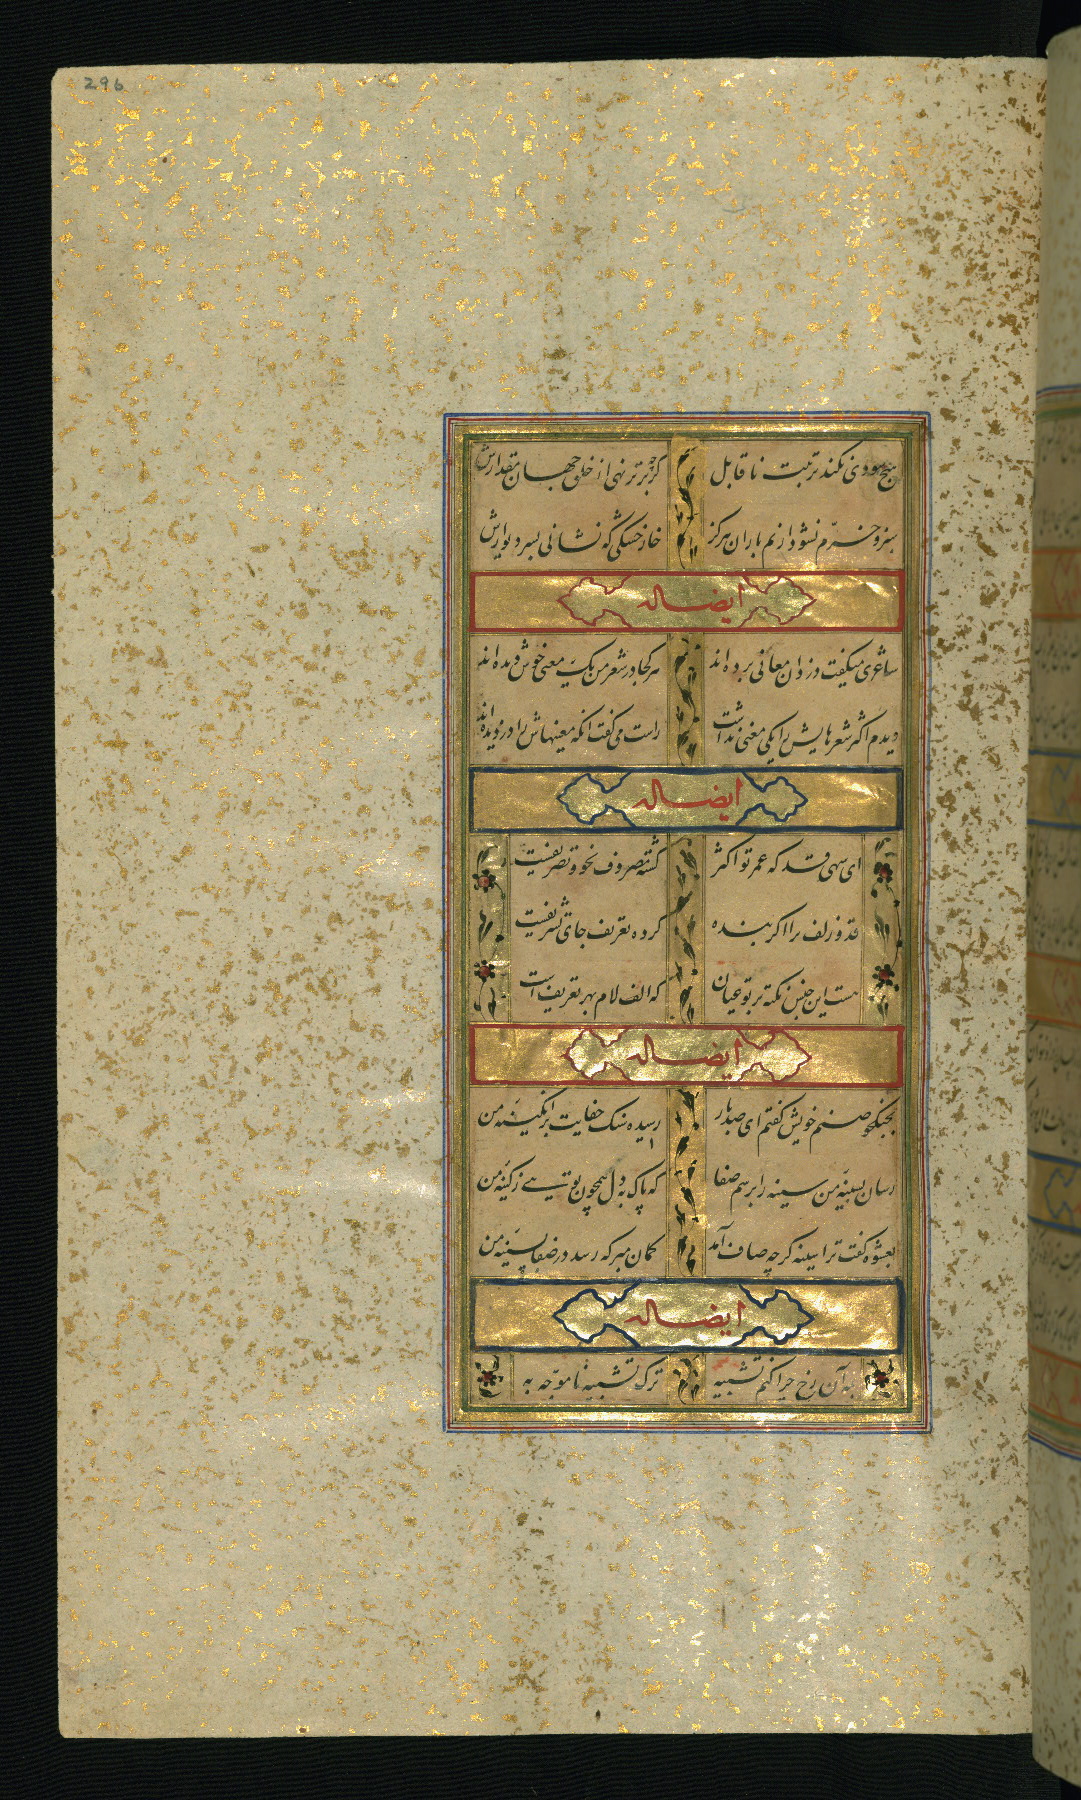 296
هیچ سودی نکند تربیت ناقابل
گرچه برتر نهی از خلق جهان مقدارش
سبز و خرم نشود از نم باران هرگز
خار خشکی که نشانی بسر دیوارش
ایضا له
شاعری میگفت دزدان معانی برده اند
هر کجا در شعر من یک معنی خوش دیده اند
دیدم اکثر شعرهایش را یکی معنی نداشت
راست می گفت آنکه معنیهاش را دزدیده اند
ایضا له
ای سهی قد که عمر تو اکثر
گشته مصروف نحو و تصریفست
قد و زلف ترا اگر بنده
کرده تعریف جای تشریفست
هست این جنس نکته بر تو عیان
که الف لام بهر تعریف است
ایضا له
بجنگجو صنم خویش گفتم ای صد بار
رسیده سنگ جفایت بر آبگینه من
رسان بسینه من سینه را برسم صفا
که پاک به دل همچون تویی ز کینه من
بعشوه گفت ترا سینه گرچه صاف آمد
گمان مبر که رسد در صفا بسینه من
ایضا له
به آن رخ چرا کنم تشبیه
ترک تشبیه ناموجه به